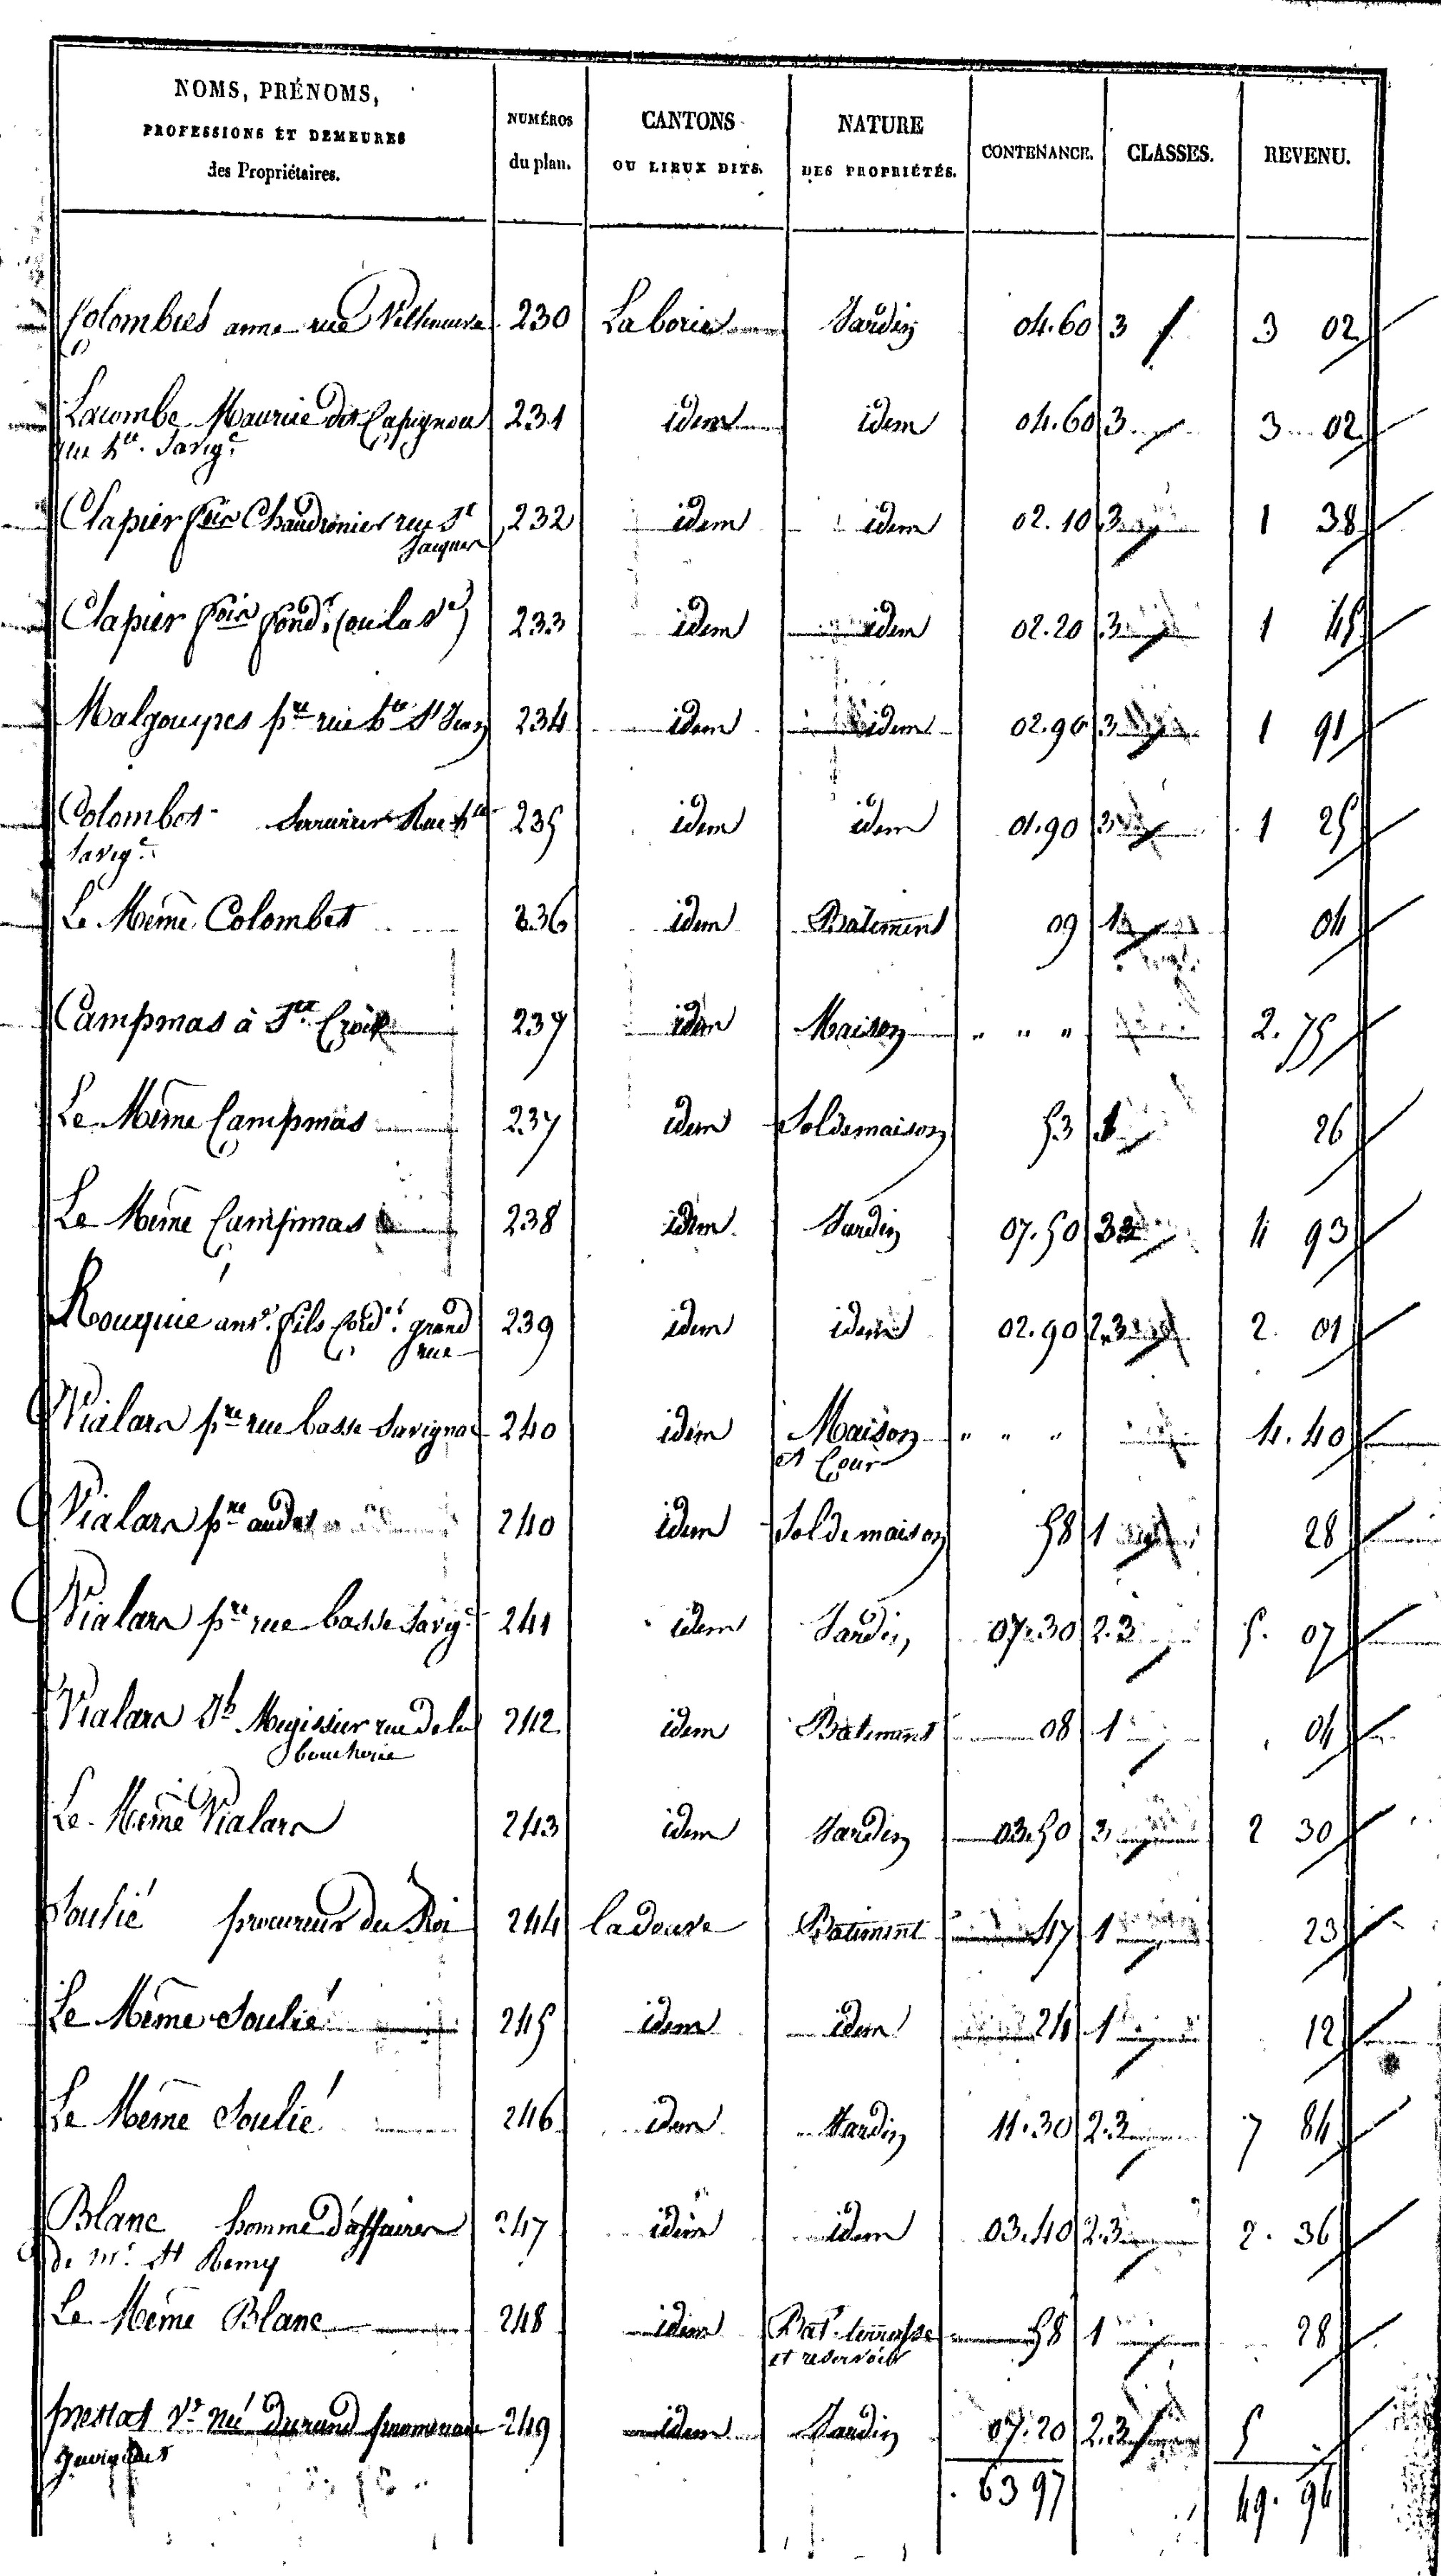 NOMS, PRÉNOMS, PROFESSIONS ET DEMEURES des Propriétaires. NUMÉROS du plan. CANTONS OU LIEUX DITS. NATURE DES PROPRIÉTÉS. CONTENANCE. CLASSES. REVENU.
Colombies anne rue Villeneuve 230 Laborie Jardin 04.60 3 3 02
Lacombe Maurice dit Capignou 231 idem idem 04.60 3 3 02
rue hte. Savigc
Clapier foix Chaudronier rue St 232 idem idem 02.10 3 1 38
Jacques
Clapier foix fondr (ou la ve) 233 idem idem 02.20 3 1 45
Malgouyres pre rue bte St Jean 234 idem idem 02.90 3 1 91
Colombet Serrurier Rue hte 235 idem idem 01.90 3 1 25
Savigc
Le Meme Colombet 236 idem Batiment 09 1 04
Campmas à Ste Croix 237 idem Maison " " " 2.75
Le Meme Campmas 237 idem Sol de maison 53 1 26
Le Meme Campmas 238 idem Jardin 07.50 3 4 93
Rouquié ane. fils cordr. grand 239 idem idem 02.90 2.3 2. 01
rue
Vialars pre rue basse Savignac 240 idem Maison " " " 4.40
et Cour
Vialars pre audit 240 idem Sol de maison 58 1 28
Vialars pre rue basse Savigc 241 idem Jardin 07.30 2.3 5. 07
Vialars Jh Megissier rue de la 242 idem Batiment 08 1 04
boucherie
Le Meme Vialars 243 idem Jardin 03.50 3 2 30
Soulié procureur du Roi 244 ladouve Batiment 47 1 23
Le Meme Soulié 245 idem idem 24 1 12
Le Meme Soulié 246 idem Jardin 11.30 2.3 7 84
Blanc homme d'affaires 247 idem idem 03.40 2.3 2. 36
de Mr. St Remy
Le Meme Blanc 248 idem Bat. terrasse 58 1 28
et reservoir
prestat Ve née durand promenade 249 idem Jardin 07.20 2.3 5
63 97 49. 94